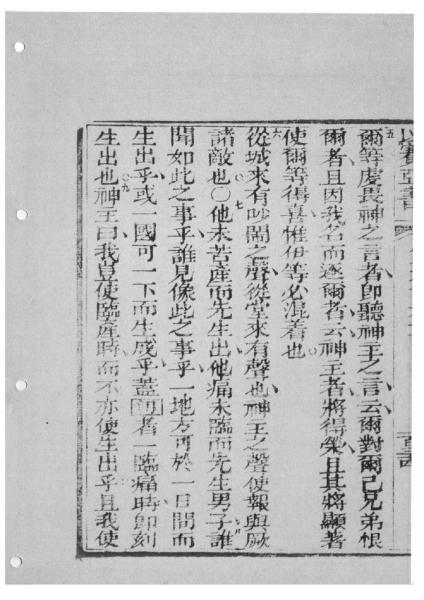 以賽亞書
五爾等虔畏神之言者卽聽神王之言云爾對爾己兄弟恨
爾者且因我名而逐爾者云神王者將得榮且其將顯著
使爾等得喜惟伊等必混羞也
六從城來有吵鬧之聲從堂來有聲也神王之聲使報與厥
諸敵也○七他未苦產而先生出他痛未臨而先生男子八誰
聞如此之事乎誰見像此之事乎一地方可於一日間而
生出乎或一國可一下而生成乎蓋者一臨痛時卽刻
生出也九神王曰我豈使臨產時而不亦使生出乎且我使